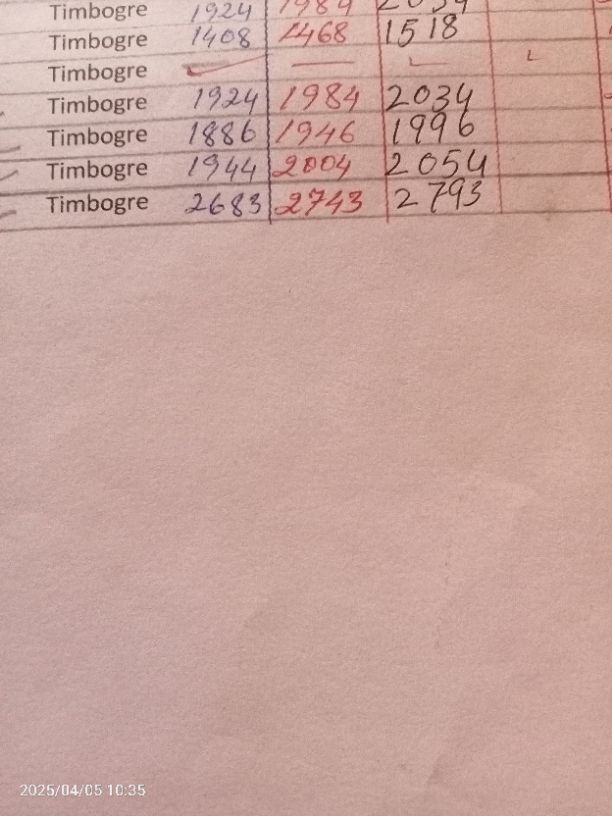 Timbogre 1924 1984 2034
Timbogre 1408 1468 1518
Timbogre
Timbogre 1924 1984 2034
Timbogre 1886 1946 1996
Timbogre 1944 2004 2054
Timbogre 2683 2743 2793
2025/04/05 10:35